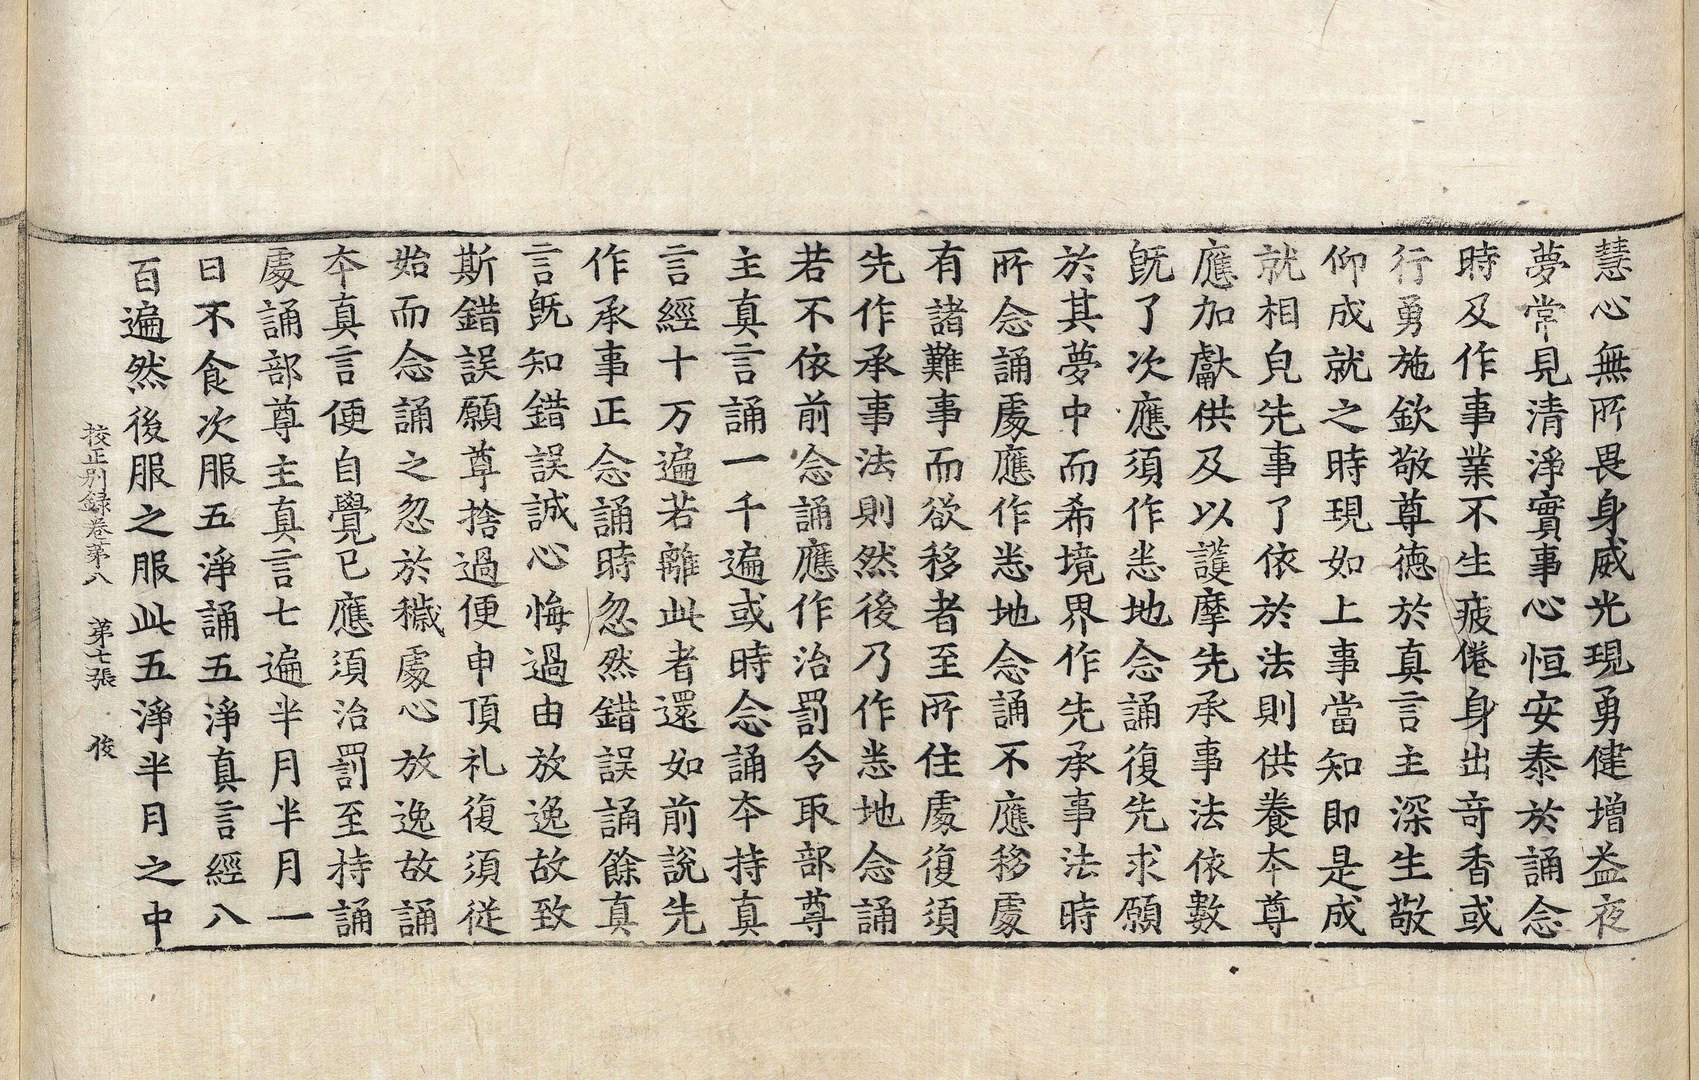 慧心無所畏身威光現勇健增益夜
夢常見清淨實事心恒安泰於誦念
時及作事業不生疲倦身出竒香或
行勇施欽敬尊德於真言主深生敬
仰成就之時現如上事當知即是成
就相皃先事了依於法則供養夲尊
應加獻供及以護摩先承事法依數
旣了次應須作悉地念誦復先求願
於其夢中而希境界作先承事法時
所念誦䖏應作悉地念誦不應移䖏
有諸難事而欲移者至所住䖏復須
先作承事法則然後乃作悉地念誦
若不依前念誦應作治罰令取部尊
主真言誦一千遍或時念誦夲持真
言經十万遍若離此者還如前說先
作承事正念誦時忽然錯誤誦餘真
言旣知錯誤誠心悔過由放逸故致
斯錯誤願尊捨過便申頂礼復須従
始而念誦之忽於穢䖏心放逸故誦
夲真言便自覺已應須治罰至持誦
䖏誦部尊主真言七遍半月半月一
日不食次服五淨誦五淨真言經八
百遍然後服之服此五淨半月之中
挍正别録卷第八　第七張　俊